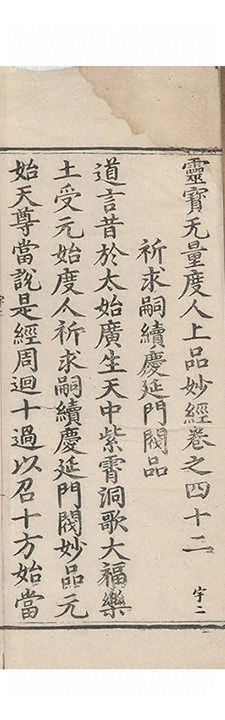 靈寳无量度人上品妙經卷之四十二 宇二
祈求嗣續慶延門閥品
道言昔於太始廣生天中紫霄洞歌大福樂
土受元始度人祈求嗣續慶延門閥妙品元
始天尊當說是經周迴十過以召十方始當